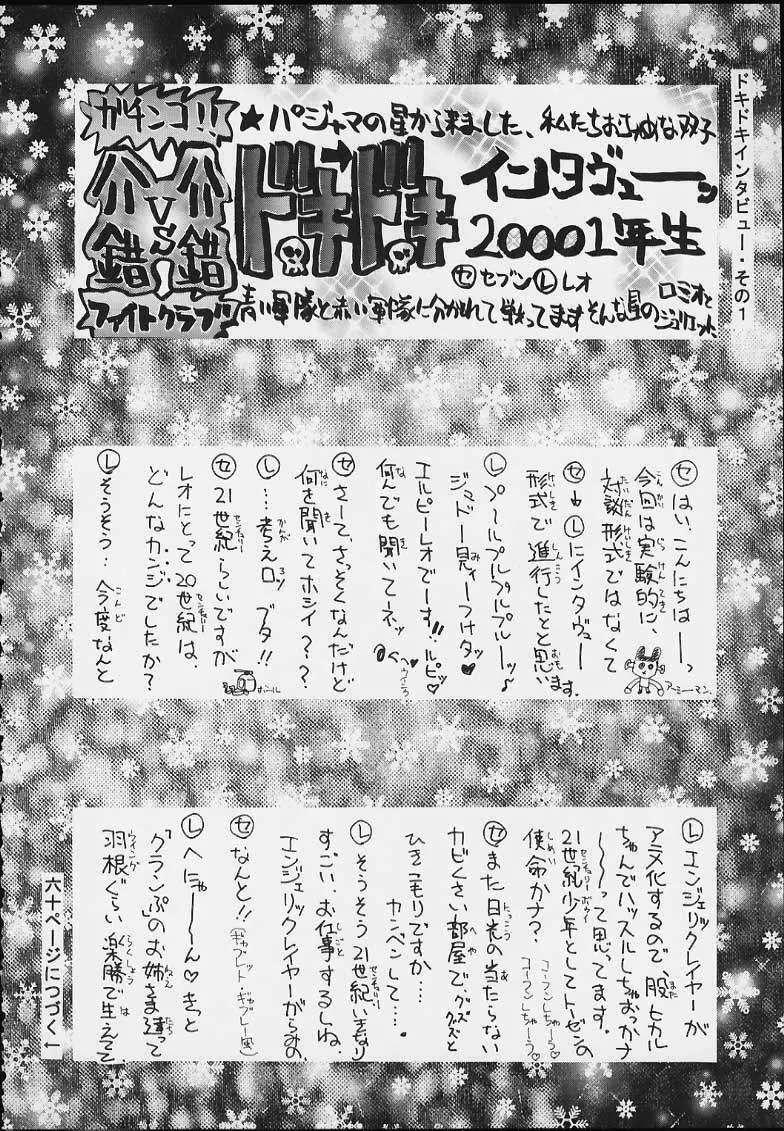 ドキドキインタビュー・その1
ガチンコ!!
介錯
VS
介錯
ファイトクラブ
★パジャマの星から来ました、私たちおちゃめな双子
ドキドキ
インタヴューッ
20001年生
セ セブン レ レオ
青い軍隊と赤い軍隊に分かれて戦ってますそんな星の
ロミオと
ジュリエット
セ はい、こんにちはーっ
今回は実験的に、
対談形式ではなくて
セ→レにインタヴュー
形式で進行したいと思います。
アーミーマン。
レ プールプルプルプルーッ♪
ジュドー見ィーつけタッ♥
エルピーレオでーす!!ルピッ♡
何んでも聞いてーネッ
セ さーて、さっそくなんだけど
何を聞いてホシイ??
レ …考えロッ ブタ!!
セ 21世紀らしいですが
レオにとって20世紀は、
どんなカンジでしたか?
レ そうそう…今度なんと
レ エンジェリックレイヤーが
アニメ化するので、股ヒカル
ちゃんでハッスルしちゃおっかナ
〜〜って思ってます。
21世紀少年としてトーゼンの
使命かナ?
コーフンしちゃーう♡
コーフンしちゃーう♡
セ また日光の当たらない
カビくさい部屋で、グズグズと
ひきこもりですか…
カンベンして…。
レ そうそう21世紀いきなり
すごい、お仕事するしね。
エンジェリックレイヤーがらみの
セ なんと!!(ギャブレット・ギャブレー風)
レ へにゃ〜〜ん♡きっと
「クランぷ」のお姉さま達って
羽根ぐらい楽勝で生えてて
六十ページにつづく←